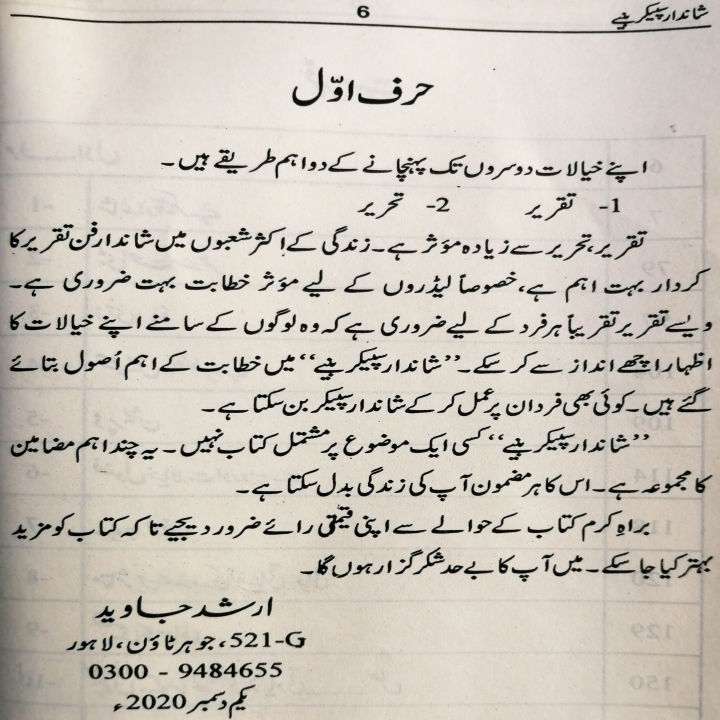 شاندار سپیکر بنیے
6
حرف اوّل
اپنے خیالات دوسروں تک پہنچانے کے دو اہم طریقے ہیں۔
1- تقریر 2- تحریر
تقریر، تحریر سے زیادہ مؤثر ہے۔ زندگی کے اکثر شعبوں میں شاندار فن تقریر کا
کردار بہت اہم ہے، خصوصاً لیڈروں کے لیے مؤثر خطابت بہت ضروری ہے۔
ویسے تقریر تقریباً ہر فرد کے لیے ضروری ہے کہ وہ لوگوں کے سامنے اپنے خیالات کا
اظہار اچھے انداز سے کر سکے۔ ”شاندار سپیکر بنیے“ میں خطابت کے اہم اُصول بتائے
گئے ہیں۔ کوئی بھی فرد ان پر عمل کر کے شاندار سپیکر بن سکتا ہے۔
”شاندار سپیکر بنیے“ کسی ایک موضوع پر مشتمل کتاب نہیں۔ یہ چند اہم مضامین
کا مجموعہ ہے۔ اس کا ہر مضمون آپ کی زندگی بدل سکتا ہے۔
براہِ کرم کتاب کے حوالے سے اپنی قیمتی رائے ضرور دیجیے تاکہ کتاب کو مزید
بہتر کیا جا سکے۔ میں آپ کا بے حد شکر گزار ہوں گا۔
ارشد جاوید
521-G، جوہر ٹاؤن، لاہور
0300 - 9484655
یکم دسمبر 2020ء